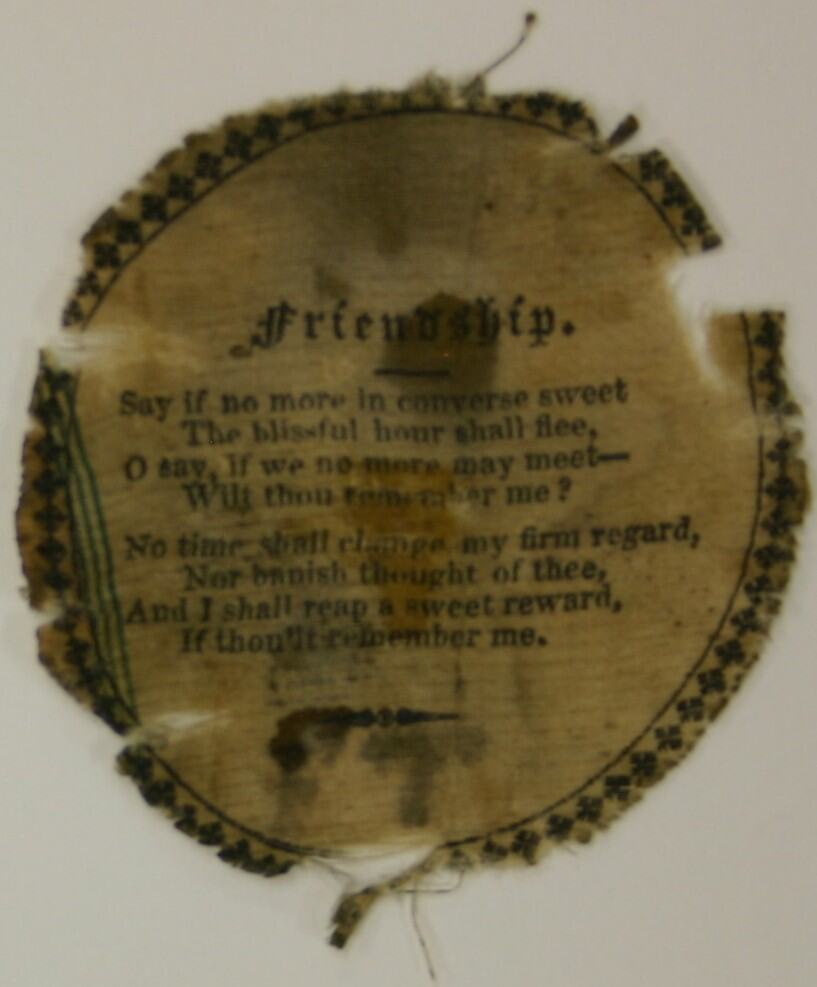 Friendship.
Say if no more in converse sweet
The blissful hour shall flee,
O say, if we no more may meet—
Wilt thou remember me?
No time shall change my firm regard,
Nor banish thought of thee,
And I shall reap a sweet reward,
If thou'lt remember me.